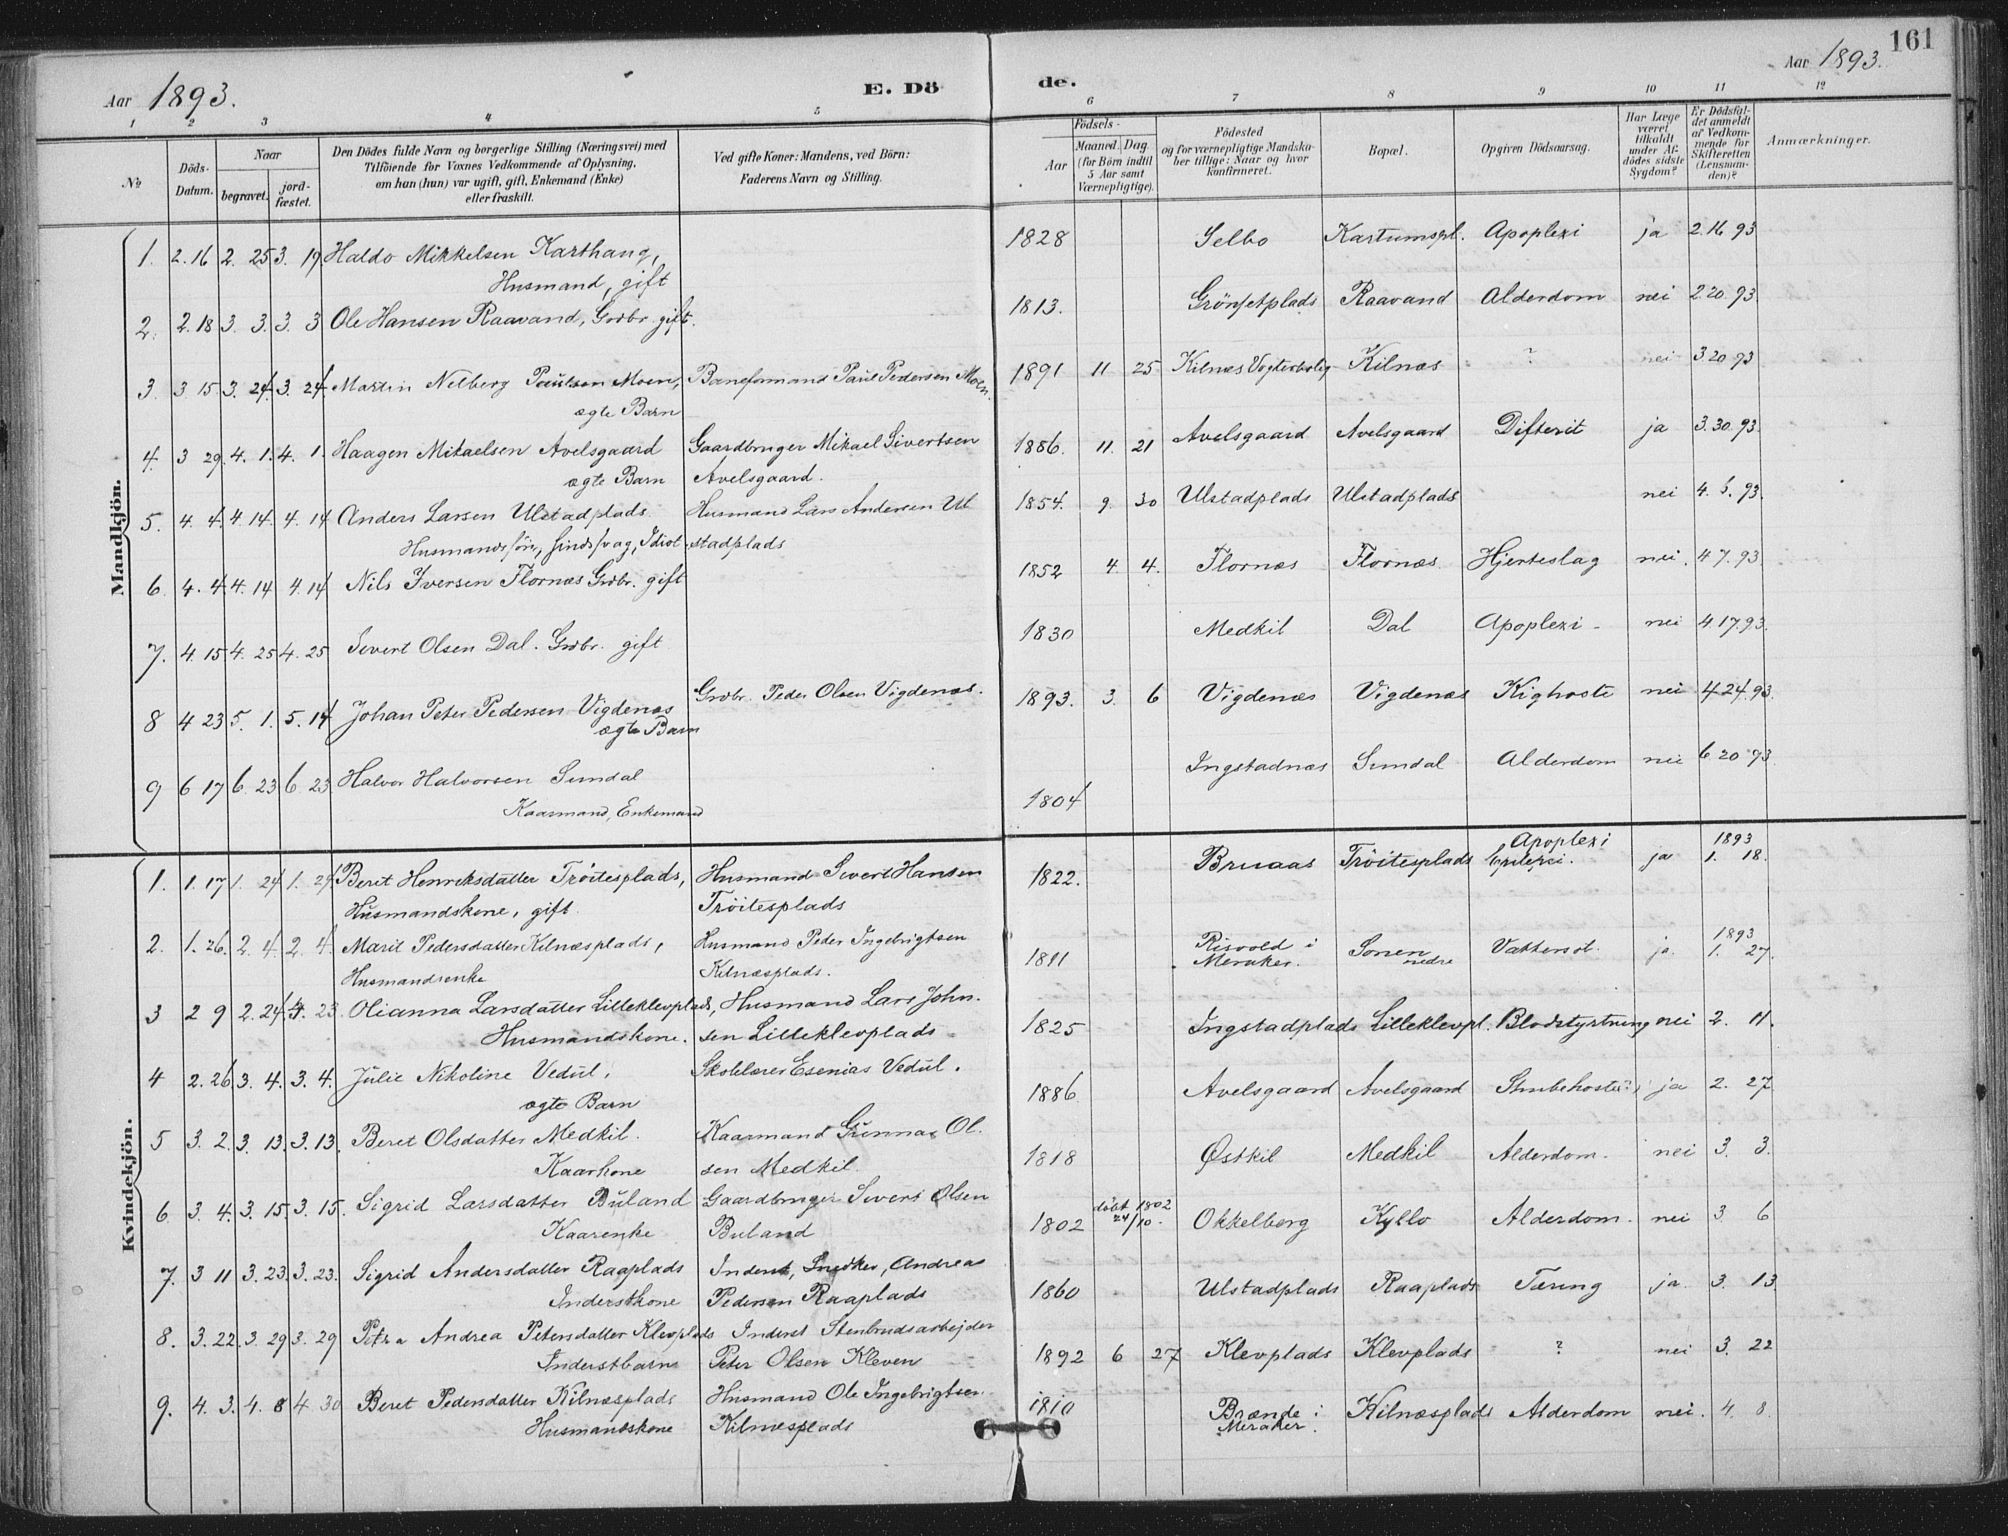 161
Aar 1893.
E. Dö
de.
Aar 1893.
1 2 3 4 5 6 7 8 9 10 11 12
No
Döds-Datum.
Naar
begravet.
jord-fæstet.
Den Dödes fulde Navn og borgerlige Stilling (Næringsvei) med
Tilföiende for Voxnes Vedkommende af Oplysning,
om han (hun) var ugift, gift, Enkemand (Enke)
eller fraskilt.
Ved gifte Koner: Mandens, ved Börn:
Faderens Navn og Stilling.
Födsels-
Aar
Maaned. Dag.
(for Börn indtil
5 Aar samt
Værnepligtige).
Födested
og for værnepligtige Mandska-
ber tillige: Naar og hvor
konfirmeret.
Bopæl.
Opgiven Dödsaarsag.
Har Læge
været
tilkaldt
under Af-
dödes sidste
Sygdom?
Er Dödsfal-
det anmeldt
af Vedkom-
mende for
Skifteretten
(Lensman-
den)?
Anmærkninger.
Mandkjön.
1. 2.16 2. 25 3. 19 Haldo Mikkelsen Karthaug, 1828 Selbo Kartumspl. Apoplexi ja 2.16 93
Husmand, gift
2. 2.18 3. 3. 3. 3 Ole Hansen Raavand, Grdbr. gift. 1813. Grönsetplads Raavand Alderdom nei 2 20. 93.
3 3 15. 3. 24. 3. 24 Martin Nilberg Paulsen Moen, Baneformand Paul Pedersen Moen. 1891 11 25 Kilnæs Vogterbolig Kilnæs ? nei 3 20 93
ægte Barn
4 3 29. 4. 1. 4. 1. Haagen Mikaelsen Avelsgaard Gaardbruger Mikael Sivertsen 1886. 11. 21 Avelsgaard Avelsgaard Difterit ja 3.30.93.
ægte Barn Avelsgaard.
5. 4. 4. 4. 14. 4. 14 Anders Larsen Ulstadplads Husmand Lars Andersen Ul 1854. 9. 30 Ulstadplads Ulstadplads nei 4. 5. 93.
Husmandssön, sindssvag, Idiot stadplads
6. 4. 4. 4. 14 4. 14 Nils Iversen Flornæs Grdbr. gift 1852 4. 4. Flornæs Flornæs Hjerteslag nei. 4 7. 93
7. 4. 15 4. 25 4. 25 Sivert Olsen Dal. Grdbr. gift 1830 Medkil Dal Apoplexi - nei 4.17.93.
8 4 23 5. 1. 5. 14 Johan Peter Pedersen Vigdenæs Grdbr. Peder Olsen Vigdenæs. 1893. 3. 6 Vigdenæs Vigdenæs Kighoste nei 4 24. 93
ægte Barn
9 6 17 6. 23 6 23 Halvor Halvorsen Sumdal 1804 Ingstadnæs Sumdal Alderdom nei 6 20 93
Kaarmand, Enkemand
Kvindekjön.
1. 1. 17 1. 24 1. 24 Beret Henriksdatter Tröitesplads, Husmand Sivert Hansen 1822. Bruaas Tröitesplads Apoplexi ja 1893 1. 18.
Husmandskone, gift. Tröitesplads
2. 1. 26. 2. 4. 2. 4. Marit Pedersdatter Kilnæsplads, Husmand Peder Ingebrigtsen 1811 Risvold i Meraker. Sonen nedre Vattersot. ja. 1893 1. 27.
Husmandsenke Kilnæsplads.
3 2 9 2. 24. 3. 23. Olianna Larsdatter Lilleklevplads, Husmand Lars John. 1825 Ingstadplads Lilleklevpl. Blodstyrtning nei 2. 11.
Husmandskone. sen Lilleklevplads
4 2. 26. 3. 4. 3. 4. Julie Nikoline Vedul, Skolelærer Esenias Vedul. 1886 Avelsgaard Avelsgaard Strubehoste ja 2. 27
ægte Barn
5 3. 2. 3. 13. 3. 13. Beret Olsdatter Medkil. Kaarmand Gunnar Ol. 1818 Østkil Medkil Alderdom. nei 3. 3.
Kaarkone sen Medkil.
6. 3. 4. 3. 15. 3. 15. Sigrid Larsdatter Buland Gaardbruger Sivert Olsen 1802 döbt 1802 24/10. Okkelberg Kyllo Alderdom. nei 3 6
Kaarenke Buland
7. 3 11 3. 23. 3. 23. Sigrid Andersdatter Raaplads Inderst, Snedker, Andreas 1860 Ulstadplads Raaplads Tæring ja 3. 13.
Inderstkone Pedersen Raaplads
8. 3. 22. 3. 29 3. 29 Petra Andrea Petersdatter Klevplads Inderst Stenbrudsarbejder 1892 6 27 Klevplads Klevplads ? nei 3. 22
Inderstbarn Peter Olsen Kleven
9. 4. 3. 4. 8 4. 30 Beret Pedersdatter Kilnæsplads Husmand Ole Ingebrigtsen 1810 Brænde i Meraker. Kilnæsplads Alderdom nei. 4. 8.
Husmandskone Kilnæsplads